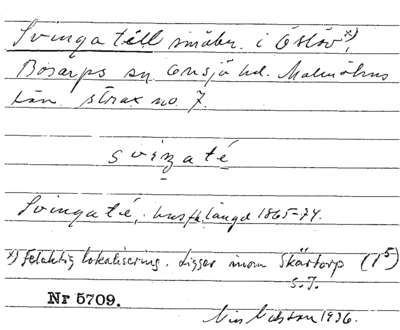 Svingatëll småbr. i Östöv x),
Bosarps sn. Onsjö hd. Malmöhus
län. strax no. 7.
svinzaté
Svingaté, husf.längd 1865-74.
x) felaktig lokalisering. Ligger inom Skärtorp (1⁵)
S.J.
Nr 5709.
Nils Nilsson 1936.